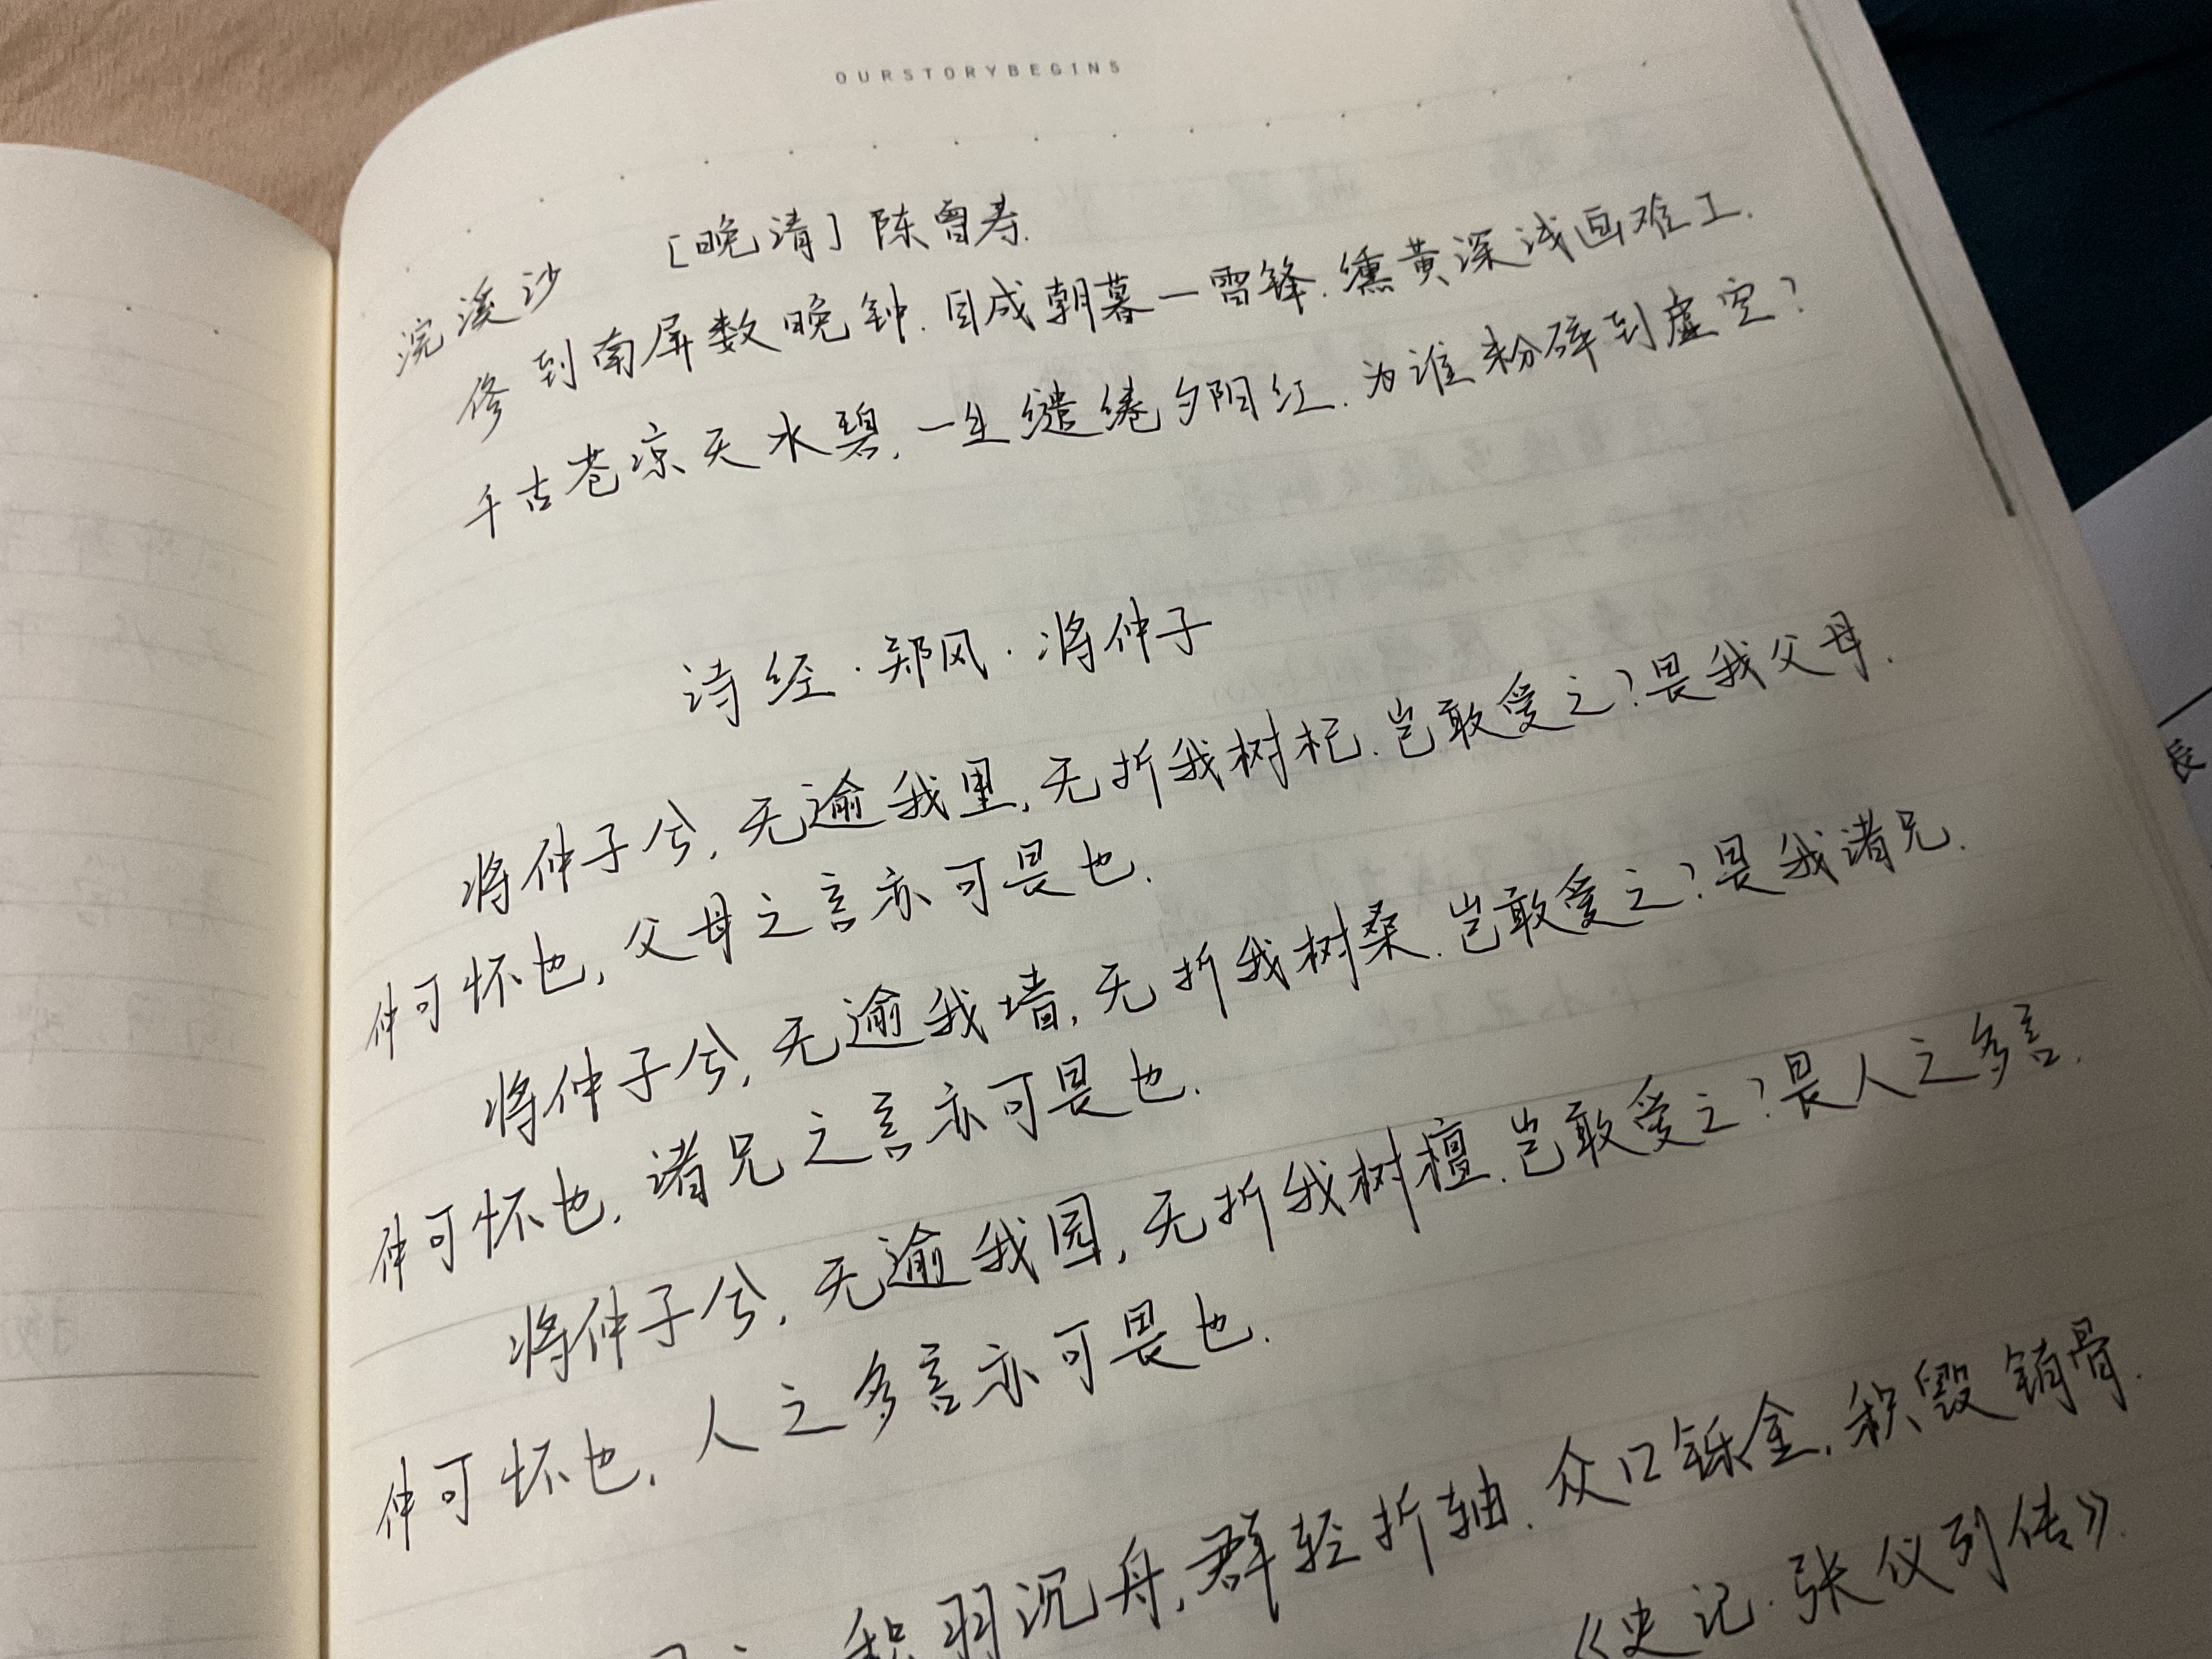 OURSTORYBEGINS
[晚清] 陈曾寿.
浣溪沙
修到南屏数晚钟.目成朝暮一雷锋.纁黄深浅画难工.
千古苍凉天水碧,一生缱绻夕阳红.为谁粉碎到虚空?
诗经·郑风·将仲子
将仲子兮,无逾我里,无折我树杞.岂敢爱之?畏我父母.
仲可怀也,父母之言亦可畏也.
将仲子兮,无逾我墙,无折我树桑.岂敢爱之?畏我诸兄.
仲可怀也,诸兄之言亦可畏也.
将仲子兮,无逾我园,无折我树檀.岂敢爱之?畏人之多言.
仲可怀也,人之多言亦可畏也.
积羽沉舟,群轻折轴.众口铄金,积毁销骨.
《史记·张仪列传》
長